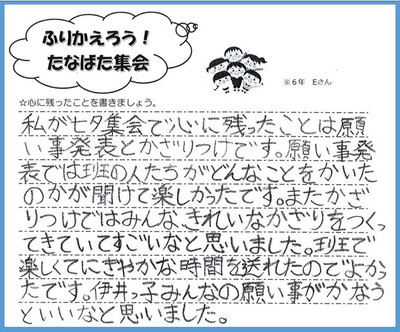 ふりかえろう！
たなばた集会
※６年　Eさん
☆心に残ったことを書きましょう。
私が七夕集会で心に残ったことは願
い事発表とかざりつけです。願い事発
表では班の人たちがどんなことをかいた
のかが聞けて楽しかったです。またかざ
りつけではみんな、きれいなかざりをつくっ
てきていてすごいなと思いました。班で
楽しくてにぎやかな時間を送れたのでよかっ
たです。伊井っ子みんなの願い事がかなう
といいなと思いました。